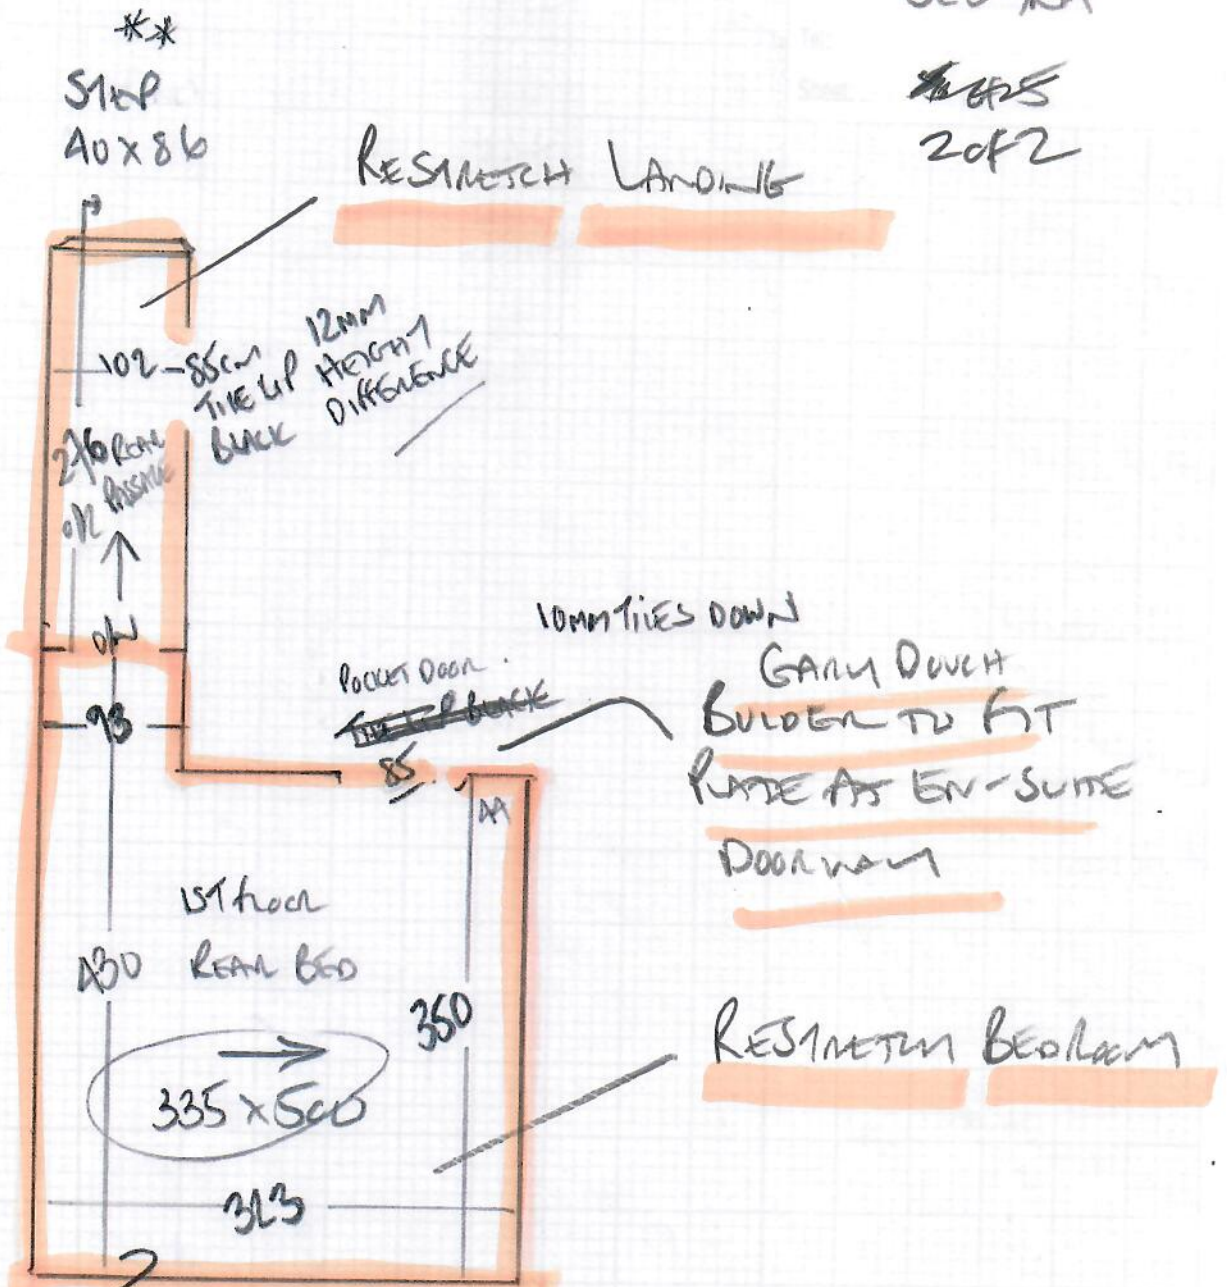 **
STEP
40 X 86
2 of 2
RESTRETCH LANDING
102 - 85cm
TILE UP
BLACK
12MM
HEIGHT
DIFFERENCE
276 REAR
PASSAGE
D/W
93
10MM TILES DOWN
POCKET DOOR
85
GARY DOUCH
BULDER TO FIT
PLATE AT EN-SUITE
DOORWAY
1ST FLOOR
REAR BED
430
350
335 X 500
RESTRETCH BEDROOM
323